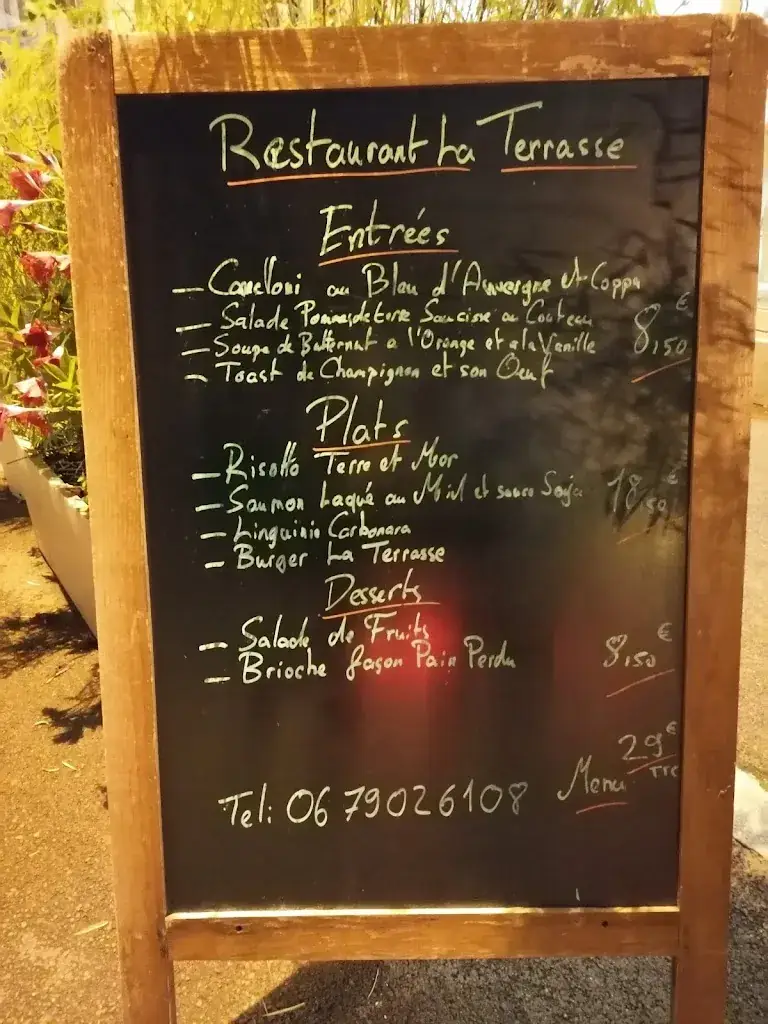 Restaurant La Terrasse
Entrées
- Canelloni au Bleu d'Auvergne et Coppa
- Salade Pommes de terre Saucisse au Couteau
- Soupe de Butternut a l'Orange et a la Vanille
8,50 €
- Toast de Champignon et son Oeuf
Plats
- Risotto Terre et Mer
- Saumon Laqué au Miel et sauce Soja
18,50 €
- Linguinis Carbonara
- Burger La Terrasse
Desserts
- Salade de Fruits
- Brioche façon Pain Perdu
8,50 €
Menu 29 € TTC
Tel: 06 79026108